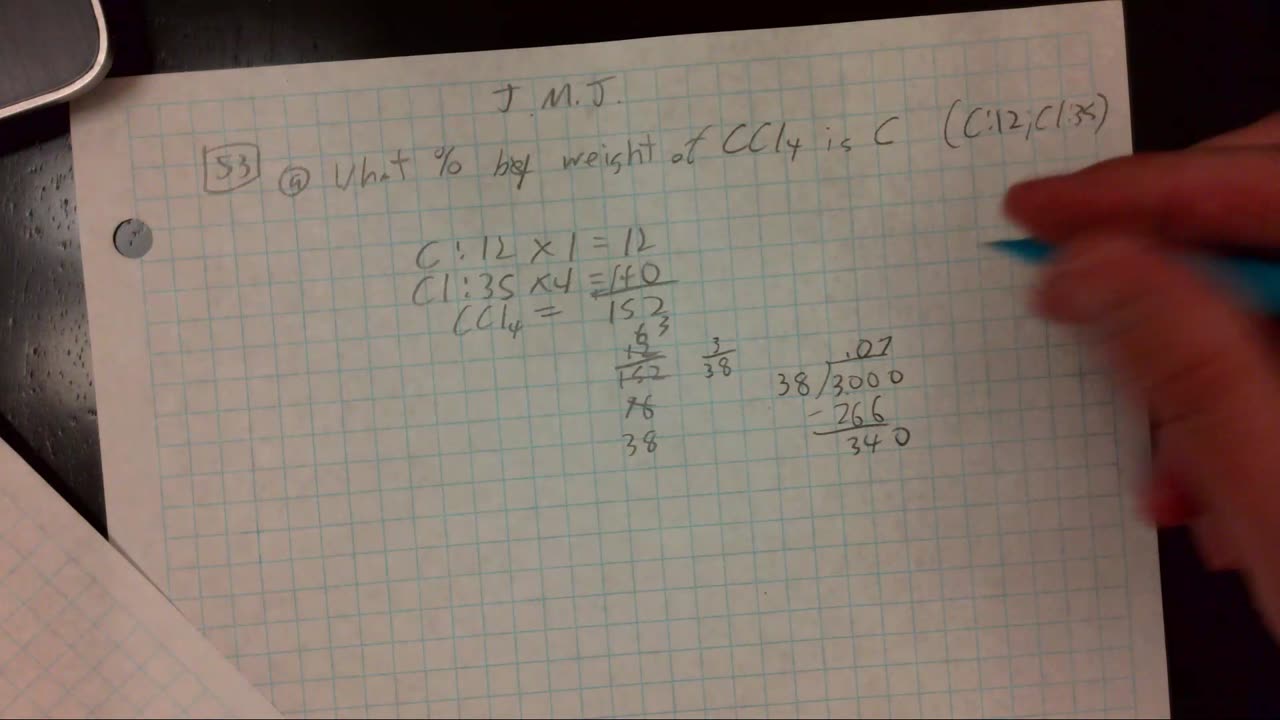 J.M.J.
53 (a) What % by weight of CCl4 is C (C:12; Cl:35)
C:12 x 1 = 12
Cl:35 x 4 = 140
CCl4 = 152
6 3
12
152
76
38
3
38
.07
38 3000
- 266
340